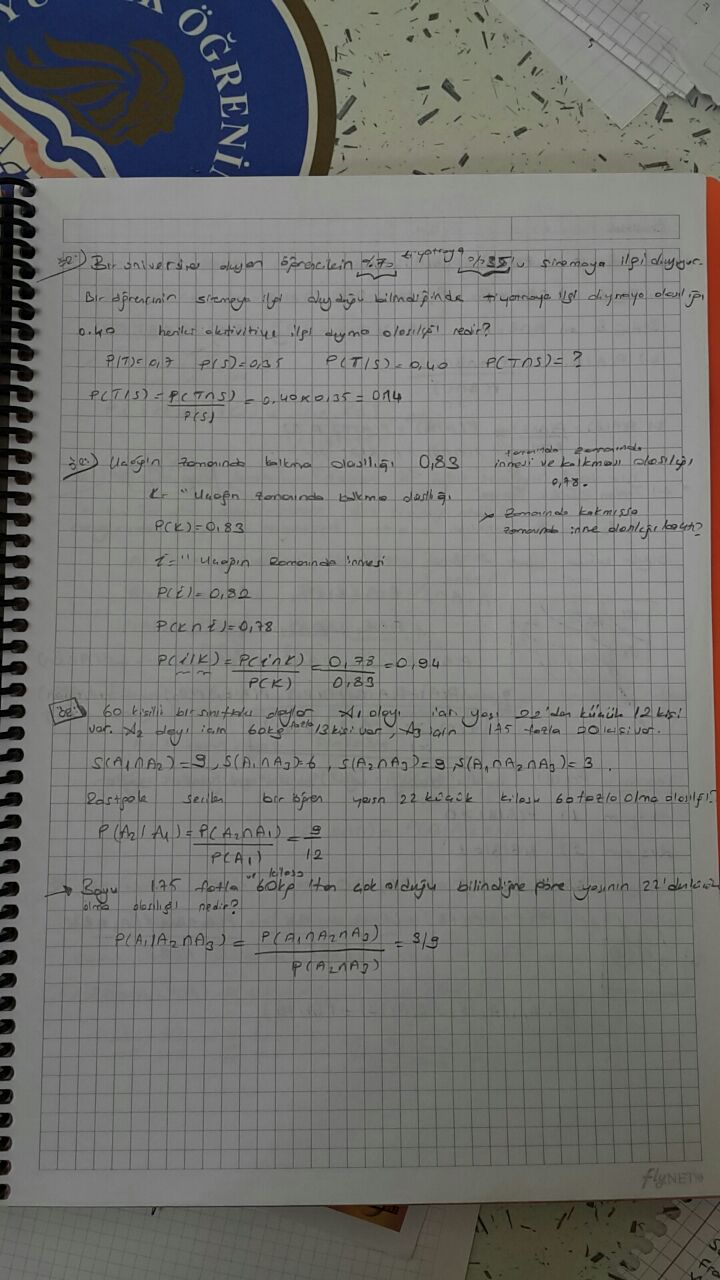 ÖĞRENİM
Bir üniversite %70 tiyatroya %35'i sinemaya ilgi duyuyor.
Bir öğrencinin sinemaya ilgi duyduğu bilindiğinde tiyatroya ilgi duymaya olasılığı
0.40 ilgi duyma olasılığı nedir?
P(T)=0,7 P(S)=0,35 P(T/S)=0,40 P(T∩S)=?
P(T/S)=P(T∩S)/P(S)=0.40x0,35=014
Uçağın zamanında kalkma olasılığı 0,83
zamanında inmesi ve kalkması olasılığı
0,78.
K= "Uçağın zamanında kalkma olasılığı
zamanında inme
P(K)=0,83
i=" Uçağın zamanında inmesi
P(i)=0,82
P(K∩i)=0,78
P(i/K)=P(i∩K)/P(K)=0,78/0,83=0,94
60 kişilik bir sınıftaki olaylar A1 olayı için yaşı 22'den küçük 12 kişi
var. A2 olayı için 60kg fazla 13 kişi var, A3 için 175 fazla 20 kişi var.
S(A1∩A2)=9, S(A1∩A3)=6, S(A2∩A3)=9, S(A1∩A2∩A3)=3.
Rastgele seçilen bir öğren yaşın 22 küçük kilosu 60 fazla olma olasılığı?
P(A2/A1)=P(A2∩A1)/P(A1)=9/12
→ Boyu 175 fazla ve kilosu 60kg'den çok olduğu bilindiğine göre yaşının 22'den küçük
olma olasılığı nedir?
P(A1/A2∩A3)=P(A1∩A2∩A3)/P(A2∩A3)=3/9
flyNET